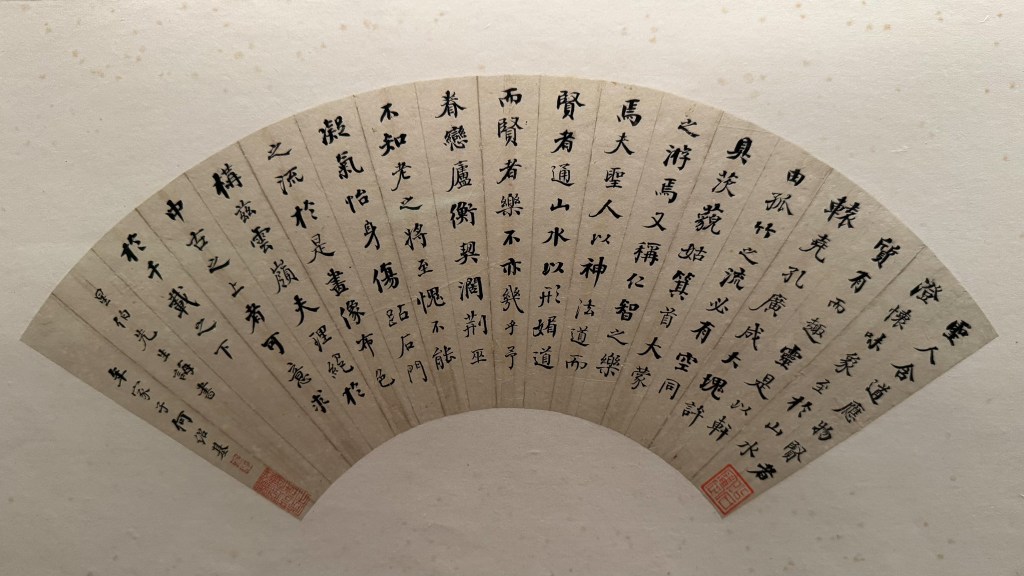 聖人含道應物賢者
澄懷味象至於山水
質有而趣靈是以軒
轅堯孔廣成大隗許
由孤竹之流必有空同
具茨藐姑箕首大蒙
之游焉又稱仁智之樂
焉夫聖人以神法道而
賢者通山水以形媚道
而賢者樂不亦幾乎予
眷戀廬衡契闊荊巫
不知老之將至愧不能
凝氣怡身傷跕石門
之流於是畫像布色
構茲雲嶺夫理絕於
中古之上者可意求
於千載之下
星伯先生誨書
年家子何紹基